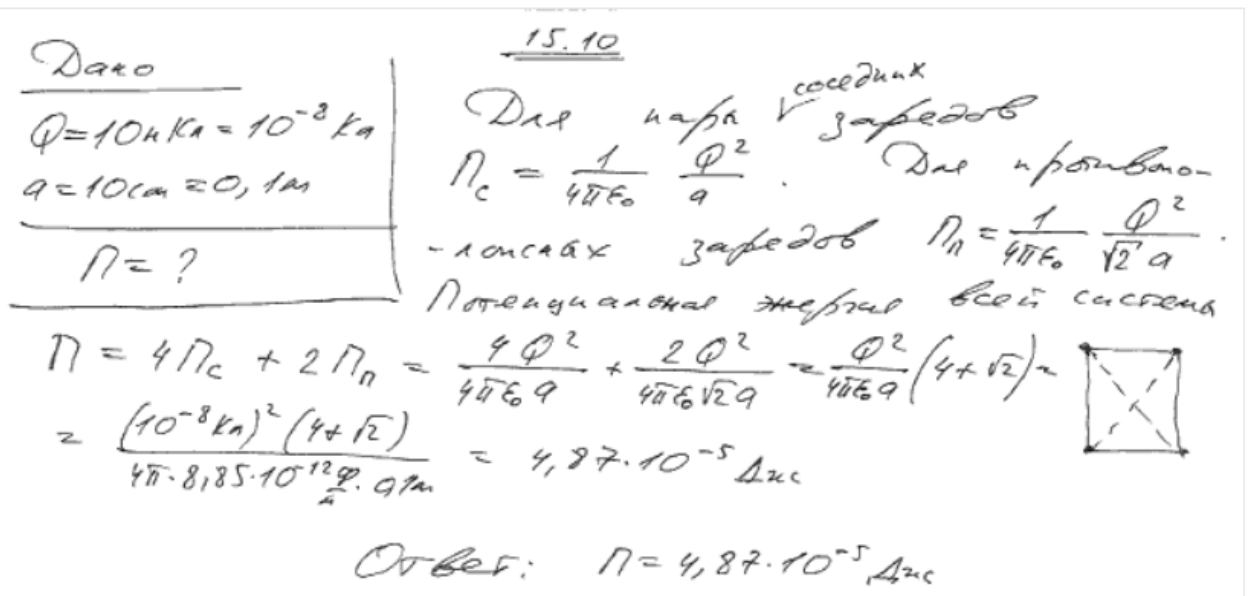 15.10
Дано
Q=10нКл=10⁻⁸Кл
a=10см=0,1м
П=?
Для пары соседних зарядов
П_c = 1/(4πε₀) Q²/a . Для противопо-
-ложных зарядов П_п = 1/(4πε₀) Q²/(√2 a) .
Потенциальная энергия всей системы
П = 4П_c + 2П_п = 4Q²/(4πε₀a) + 2Q²/(4πε₀√2a) = Q²/(4πε₀a) (4+√2) =
= (10⁻⁸Кл)²(4+√2)/(4π·8,85·10⁻¹² Ф/м · 0,1м) = 4,87·10⁻⁵ Дж
Ответ: П=4,87·10⁻⁵ Дж